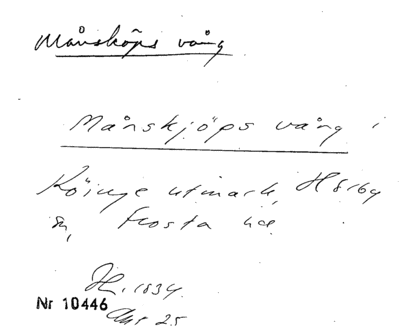 Månsköps vång
Månskjöps vång i
Köinge utmark, Hörby
sn, Frosta hd
H. 1834.
Nr 10446
Akt 25